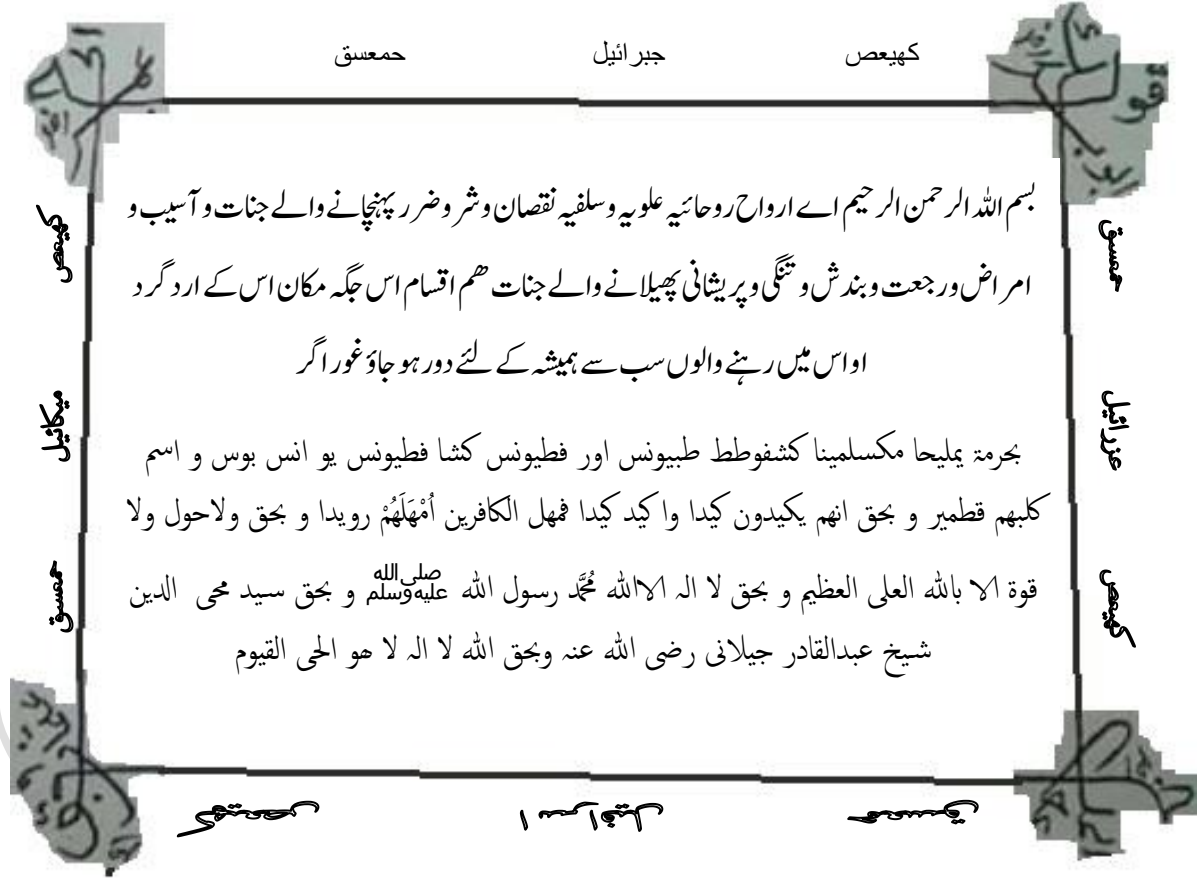 کھیعص جبرائیل حمعسق
حمعسق
عزرائیل
کھیعص
بسم اللہ الرحمن الرحیم اے ارواح روحائیہ علویہ وسلفیہ نقصان وشر وضرر پہنچانے والے جنات و آسیب و
امراض ورجعت وبندش و تنگی وپریشانی پھیلانے والے جنات ھم اقسام اس جگہ مکان اس کے اردگرد
اواس میں رہنے والوں سب سے ہمیشہ کے لئے دور ہو جاؤ غورا گر
بحرمة یملیحا مکسلمینا کشفوطط طبیونس اور فطیونس کشا فطیونس یو انس بوس و اسم
کلبهم قطمیر و بحق انهم یکیدون کیدا وا کید کیدا فمهل الکافرین اُمْهَلَهُمْ رویدا و بحق ولاحول ولا
قوة الا بالله العلی العظیم و بحق لا اله الاالله مُحَمَّد رسول الله ﷺ و بحق سید محی الدین
شیخ عبدالقادر جیلانی رضی الله عنہ وبحق الله لا اله لا هو الحی القیوم
کھیعص
میکائیل
حمعسق
حمعسق اسرافیل کھیعص